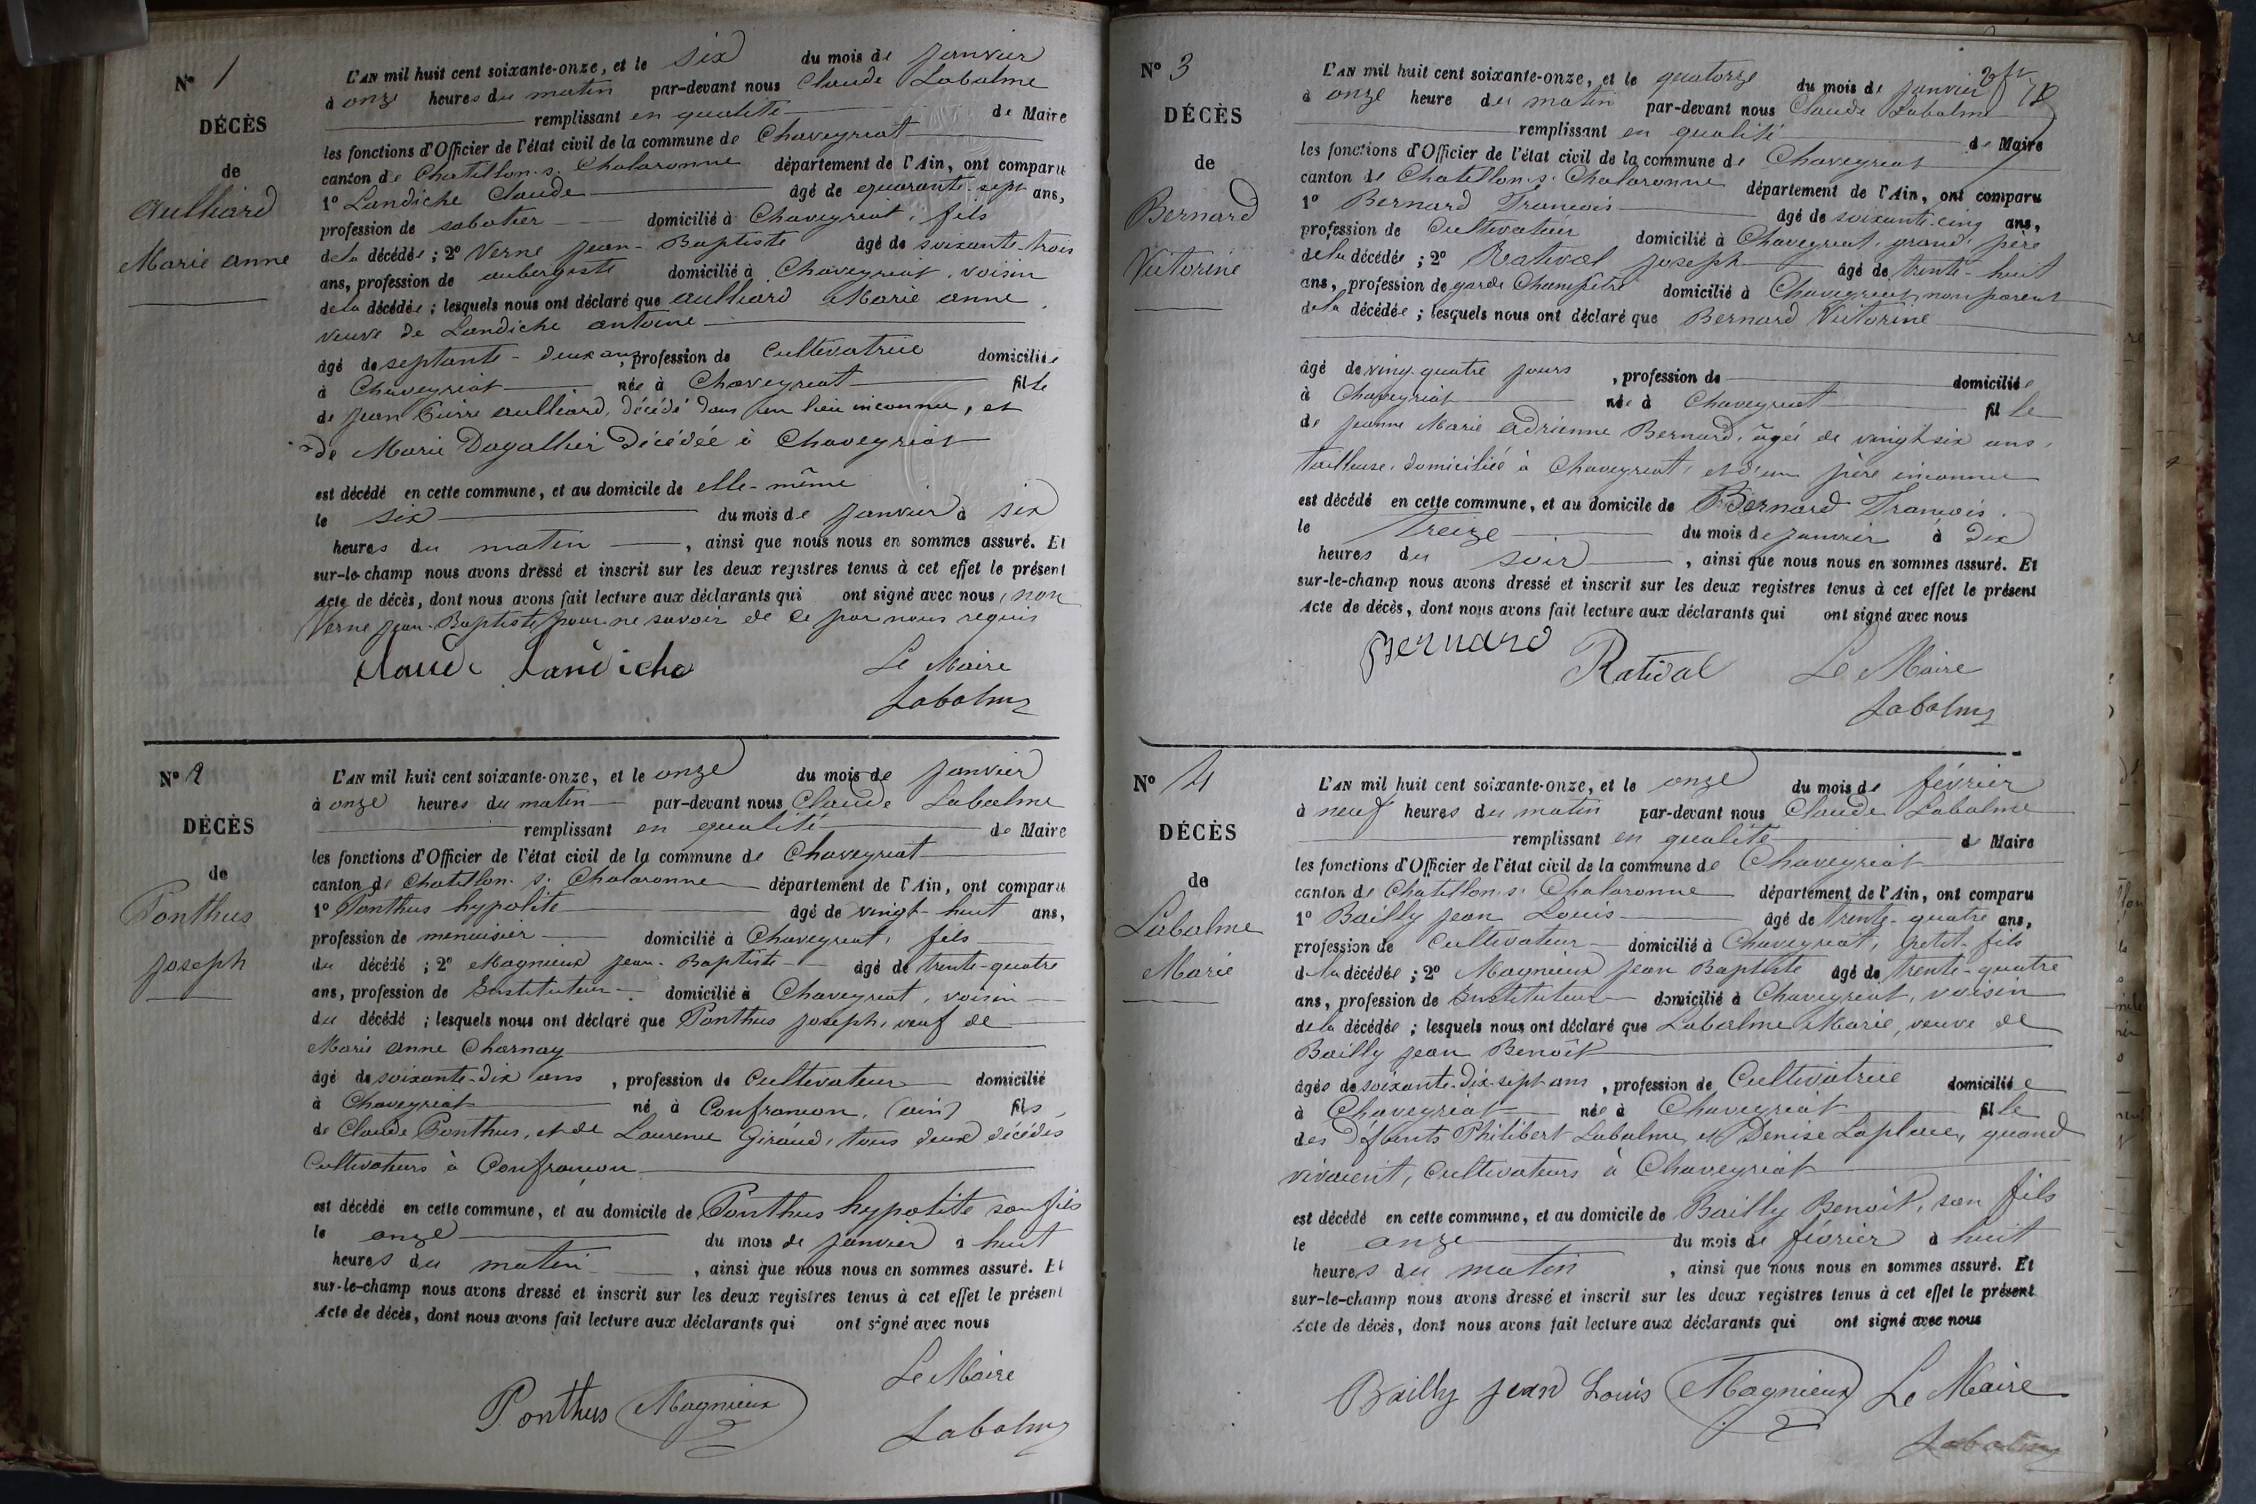 N° 1
DÉCÈS
de
Aulliard
Marie anne
L'AN mil huit cent soixante-onze, et le six du mois de janvier
à onze heures du matin par-devant nous Claude Labalme
remplissant en qualité de Maire
les fonctions d'Officier de l'état civil de la commune de Chaveyriat
canton de Chatillon-s. Chalaronne département de l'Ain, ont comparu
1° Landiche Claude âgé de quarante-sept ans,
profession de sabotier domicilié à Chaveyriat, fils
de la décédée ; 2° Verne Jean-Baptiste âgé de soixante-trois
ans, profession de aubergiste domicilié à Chaveyriat, voisin
de la décédée ; lesquels nous ont déclaré que Aulliard Marie anne
veuve de Landiche antoine
âgé de septante-deux ans, profession de Cultivatrice domiciliée
à Chaveyriat née à Chaveyriat fille
de Jean Pierre Aulliard, décédé dans un lieu inconnu, et
de Marie Dagallier décédée à Chaveyriat
est décédé en cette commune, et au domicile de elle-même
le six du mois de janvier à six
heures du matin, ainsi que nous nous en sommes assuré. Et
sur-le-champ nous avons dressé et inscrit sur les deux registres tenus à cet effet le présent
Acte de décès, dont nous avons fait lecture aux déclarants qui ont signé avec nous, non
Verne Jean-Baptiste pour ne savoir de ce par nous requis
Claude Landiche
Le Maire
Labalme
N° 2
DÉCÈS
de
Ponthus
Joseph
L'AN mil huit cent soixante-onze, et le onze du mois de janvier
à onze heures du matin par-devant nous Claude Labalme
remplissant en qualité de Maire
les fonctions d'Officier de l'état civil de la commune de Chaveyriat
canton de Chatillon-s. Chalaronne département de l'Ain, ont comparu
1° Ponthus hypolite âgé de vingt-huit ans,
profession de menuisier domicilié à Chaveyriat, fils
du décédé ; 2° Magnieux Jean-Baptiste âgé de trente-quatre
ans, profession de Instituteur domicilié à Chaveyriat, voisin
du décédé ; lesquels nous ont déclaré que Ponthus Joseph, veuf de
Marie anne Charnay
âgé de soixante-dix ans, profession de Cultivateur domicilié
à Chaveyriat né à Confrançon, (ain) fils
de Claude Ponthus, et de Laurence Giraud, tous deux décédés
Cultivateurs à Confrançon
est décédé en cette commune, et au domicile de Ponthus hypolite son fils
le onze du mois de janvier à huit
heures du matin, ainsi que nous nous en sommes assuré. Et
sur-le-champ nous avons dressé et inscrit sur les deux registres tenus à cet effet le présent
Acte de décès, dont nous avons fait lecture aux déclarants qui ont signé avec nous
Ponthus Magnieux
Le Maire
Labalme
N° 3
DÉCÈS
de
Bernard
Victorine
L'AN mil huit cent soixante-onze, et le quatorze du mois de janvier
à onze heure du matin par-devant nous Claude Labalme
remplissant en qualité de Maire
les fonctions d'Officier de l'état civil de la commune de Chaveyriat
canton de Chatillon-s. Chalaronne département de l'Ain, ont comparu
1° Bernard François âgé de soixante-cinq ans,
profession de Cultivateur domicilié à Chaveyriat, grand père
de la décédée ; 2° Ratival Joseph âgé de trente-huit
ans, profession de garde Champêtre domicilié à Chaveyriat, non parent
de la décédée ; lesquels nous ont déclaré que Bernard Victorine
âgé de ving-quatre jours, profession de domiciliée
à Chaveyriat née à Chaveyriat fille
de Jeanne Marie Adrienne Bernard, âgée de vingt six ans,
tailleuse, domiciliée à Chaveyriat, et d'un père inconnu
est décédé en cette commune, et au domicile de Bernard François.
le treize du mois de janvier à dix
heures du soir, ainsi que nous nous en sommes assuré. Et
sur-le-champ nous avons dressé et inscrit sur les deux registres tenus à cet effet le présent
Acte de décès, dont nous avons fait lecture aux déclarants qui ont signé avec nous
Bernard
Ratival
Le Maire
Labalme
N° 4
DÉCÈS
de
Labalme
Marie
L'AN mil huit cent soixante-onze, et le onze du mois de février
à neuf heures du matin par-devant nous Claude Labalme
remplissant en qualité de Maire
les fonctions d'Officier de l'état civil de la commune de Chaveyriat
canton de Chatillon-s. Chalaronne département de l'Ain, ont comparu
1° Bailly Jean Louis âgé de trente-quatre ans,
profession de Cultivateur domicilié à Chaveyriat, petit-fils
de la décédée ; 2° Magnieux Jean Baptiste âgé de trente-quatre
ans, profession de Instituteur domicilié à Chaveyriat, voisin
de la décédée ; lesquels nous ont déclaré que Labalme Marie, veuve de
Bailly Jean Benoît
âgée de soixante-dix-sept ans, profession de Cultivatrice domiciliée
à Chaveyriat née à Chaveyriat fille
des défunts Philibert Labalme, et Denise Laplace, quand
vivaient, cultivateurs à Chaveyriat
est décédé en cette commune, et au domicile de Bailly Benoit, son fils
le onze du mois de février à huit
heures du matin, ainsi que nous nous en sommes assuré. Et
sur-le-champ nous avons dressé et inscrit sur les deux registres tenus à cet effet le présent
Acte de décès, dont nous avons fait lecture aux déclarants qui ont signé avec nous
Bailly Jean Louis Magnieux Le Maire
Labalme